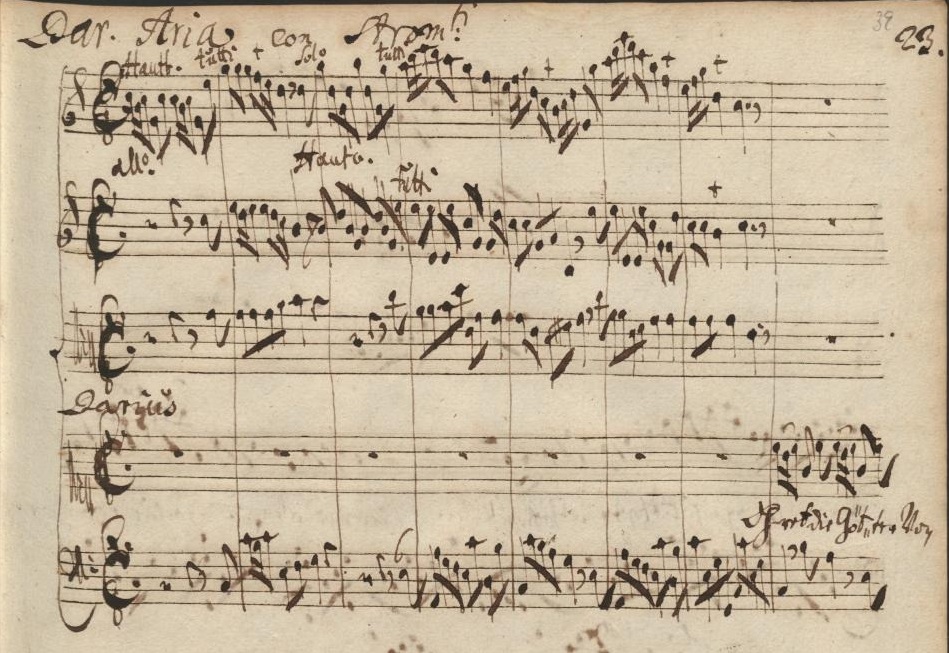 Dar. Aria con Strom:ti 39 23.
Hautb. tutti solo tutti
all:o Hautb.
tutti
Darius
6
Ehret die Götter Von